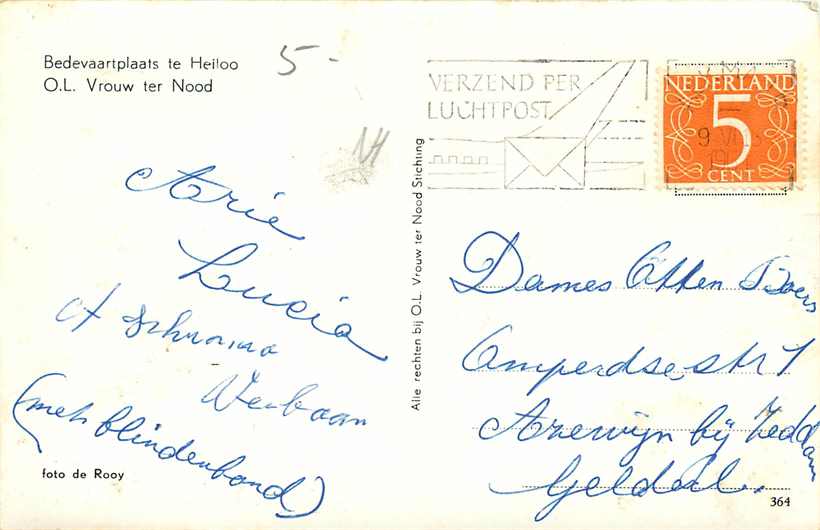 Bedevaartplaats te Heiloo
O.L. Vrouw ter Nood
5-
VERZEND PER
LUCHTPOST
NEDERLAND
5
CENT
Alle rechten bij O.L. Vrouw ter Nood Stichting
Arie
Lucia
Verbaan
(met blindenbond)
foto de Rooy
Dames Otten
str 1
Azewijn bij Zeddam
Gelderl.
364